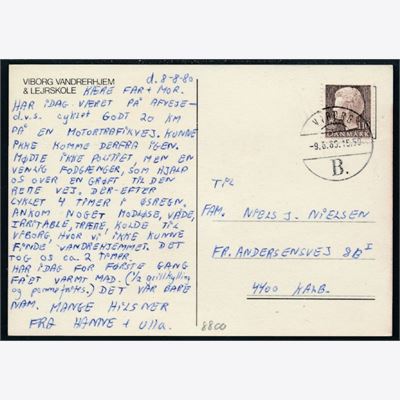 VIBORG VANDRERHJEM
& LEJRSKOLE
d. 8-8-80
KÆRE FAR + MOR.
HAR IDAG VÆRET PÅ AFVEJE-
d.v.s. cyklet GODT 20 KM
PÅ EN MOTORTRAFIKVEJ. KUNNE
IKKE KOMME DERFRA IGEN.
MØDTE IKKE POLITIET, MEN EN
VENLIG FODGÆNGER, SOM HJALP
OS OVER EN GRØFT TIL DEN
RETTE VEJ. DER-EFTER
CYKLET 4 TIMER I ØSREGN.
ANKOM NOGET MODLØSE, VÅDE,
IRRITABLE, TRÆTTE, KOLDE TIL
VIBORG, HVOR VI IKKE KUNNE
FINDE VANDREHJEMMET. DET
TOG OS CA. 2 TIMER.
HAR IDAG FOR FØRSTE GANG
FÅET VARMT MAD. (1/2 grillkylling
og pommefrites.) DET VAR BARE
NAM. MANGE HILSNER
FRA HANNE + Ulla.
DANMARK
-9.8.80.15.50
B.
TIL
FAM. NIELS J. NIELSEN
FR. ANDERSENSVEJ 8B I
4400 KALB.
8800